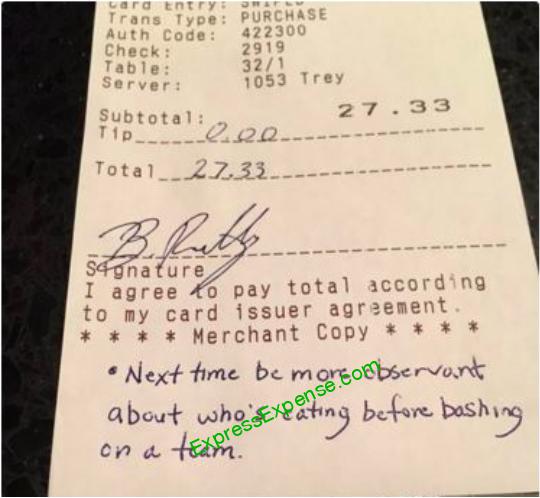 Card Entry: SWIPED
Trans Type: PURCHASE
Auth Code: 422300
Check: 2919
Table: 32/1
Server: 1053 Trey
Subtotal: 27.33
Tip 0.00
Total 27.33
Signature
I agree to pay total according
to my card issuer agreement.
* * * * Merchant Copy * * * *
• Next time be more observant
about who's eating before bashing
on a team.
ExpressExpense.com